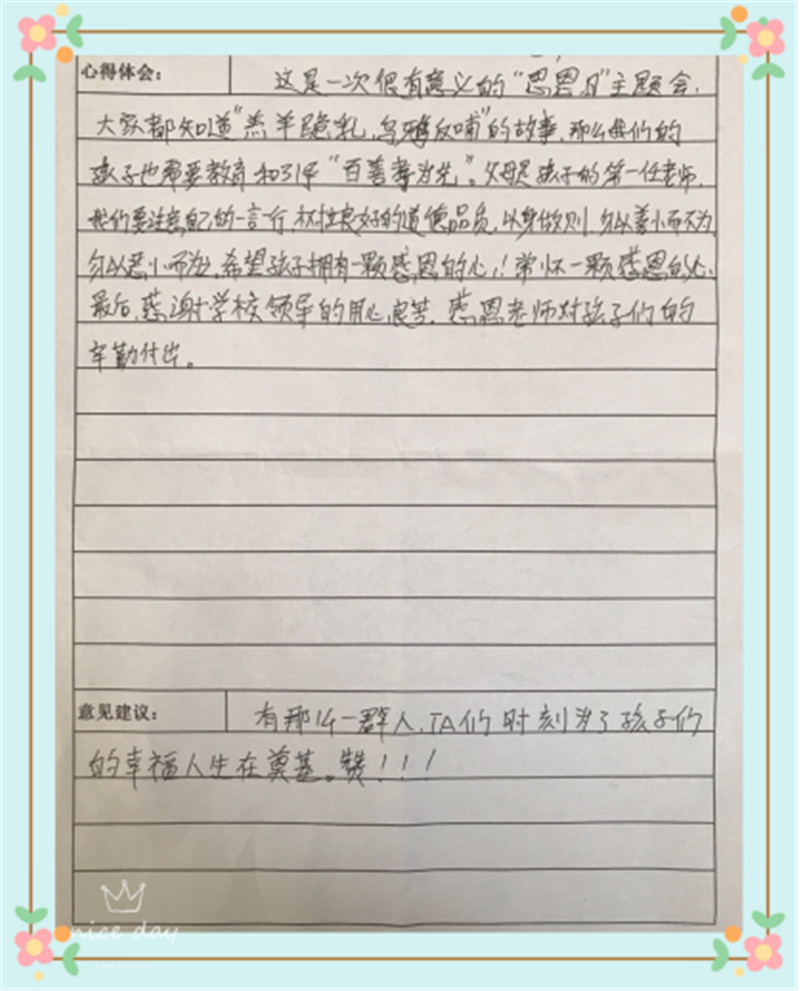 心得体会：
这是一次很有意义的“感恩月”主题会，
大家都知道“羔羊跪乳，乌鸦反哺”的故事，那么我们的
孩子也需要教育和引导“百善孝为先”。父母是孩子的第一任老师，
我们要注意自己的一言一行，树立良好的道德品质，以身做则，勿以善小而不为，
勿以恶小而为之，希望孩子拥有一颗感恩的心！常怀一颗感恩的心，
最后，感谢学校领导的用心良苦，感恩老师对孩子们的
辛勤付出。
意见建议：
有那么一群人，TA们时刻为了孩子们
的幸福人生在奠基。赞！！！
nice day